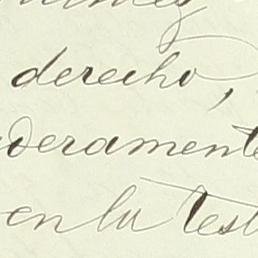 derecho,
deramente
en la test